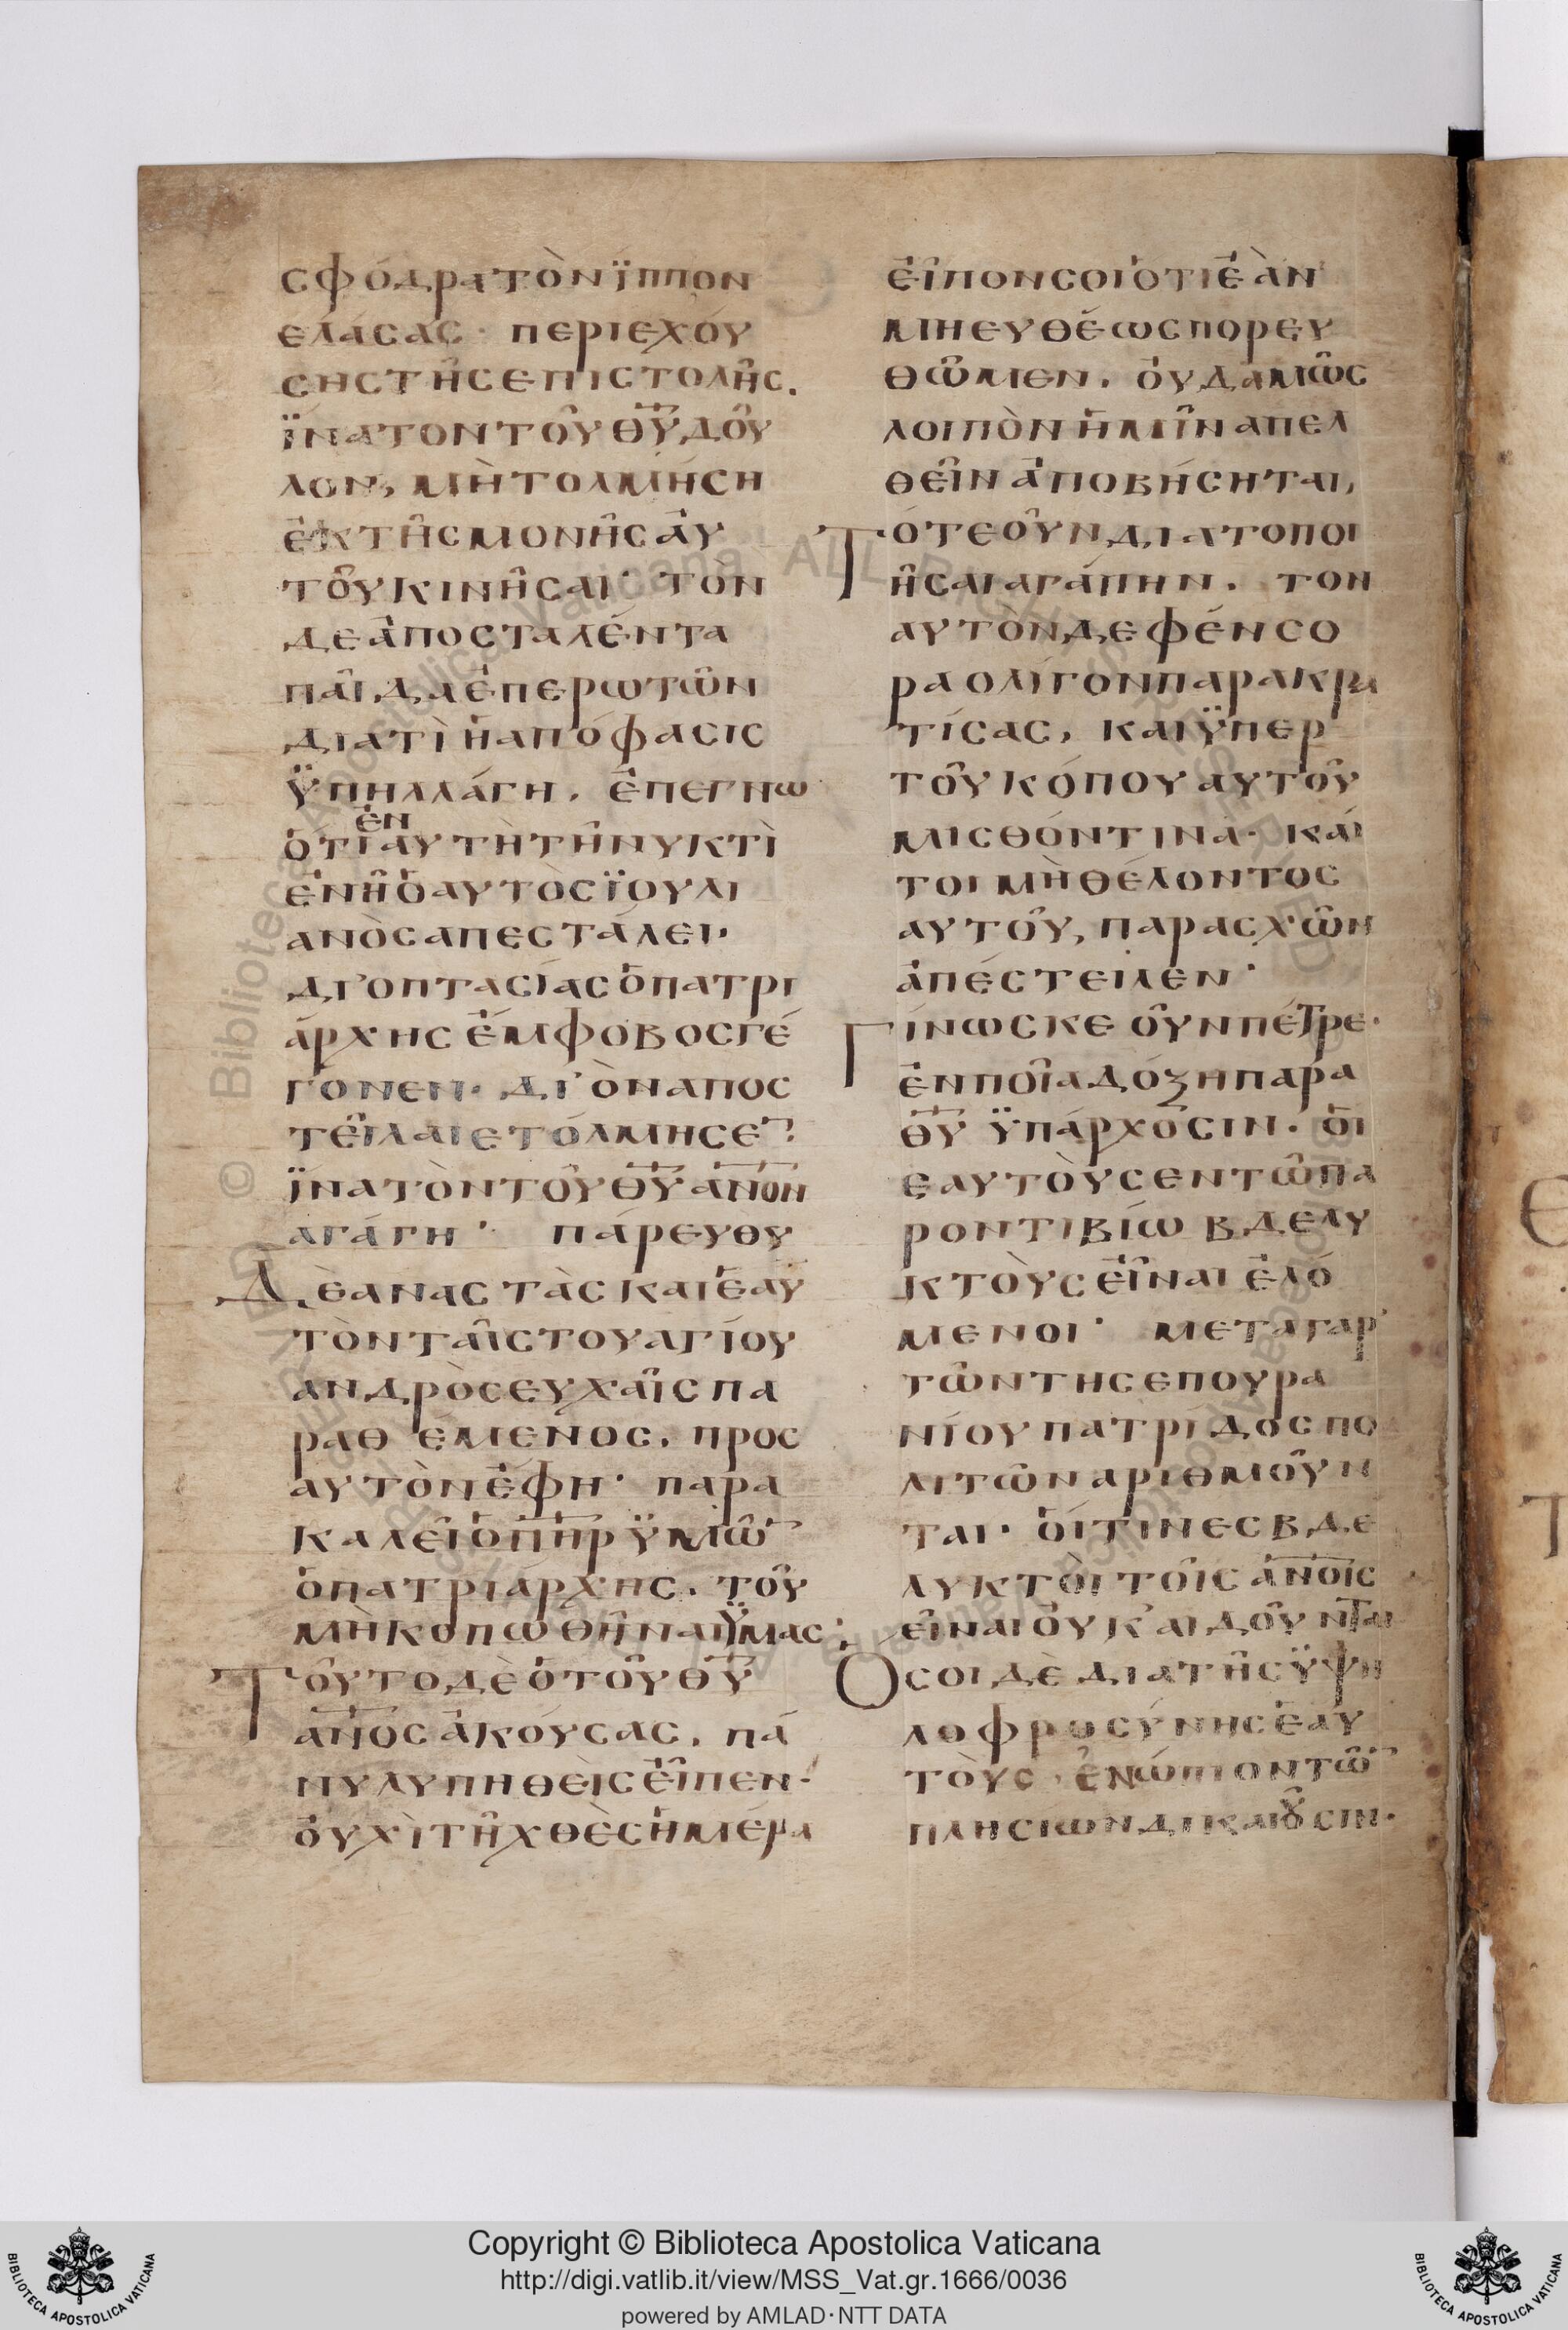 σφόδρατὸνϊππον
ελάσας· περιεχόυ
σηςτῆσεπιστολῆς.
ϊνατοντοῦθῡ,δοῦ
λον, μὴτολμήση
ἐκτῆσμονῆσἀυ
τοῦκινῆσαι· τὸν
δεἀποσταλέντα
παῖδαἐπερωτῶν
διατὶἡαπόφασις
ϋπηλλάγη. ἐπεγνω
ἐν
ὅτιαυτὴτῆνυκτὶ
ἐνῆὁαυτὸσϊουλι
ανὸσαπεστάλει·
δι'οπτασίασὁπατρι
άρχησἐμφοβοσγέ
γονεν· δι'ὸναποσ
τεῖλαιετόλμησε̄·
ϊνατὸντοῦθῡανον
αγάγη· πάρευθυ
Δὲαναστὰσκαιἑαυ
τὸνταῖστουαγίου
ανδρὸσευχαῖσπα
ραθέμενος. προς
αυτὸνἐφη· παρα
καλεῖὁπηρϋμῶ̄
ὁπατριάρχης. τοῦ
μὴκοπωθῆναιϋμας·
Τοῦτοδὲὁτοῦθῡ
ανοςἀκούσας. πά
νυλυπηθεὶσεἶπεν·
ὀυχὶτῆχθὲσἡμέρα
εἶπονσοιὁτιἐὰν
μηευθέωσπορευ
θῶμεν. ὀυδαμῶς
λοιπὸνἡμῖναπελ
θεῖνἀποβήσηται,
Τότεοῦνδιατοποι
ῆσαιαγάπην. τον
αυτὸνδεφένσο
ραολίγονπαρακρα
τίσας, καιϋπερ
τοῦκόπουαυτοῦ
μισθόντινα· καί
τοιμὴθέλοντος
αυτοῦ, παρασχῶν
ἀπέστειλεν·
Γίνωσκεοῦνπέτρε·
ἐνποῖαδόξηπαρα
θῡϋπάρχουσιν. ὁι
εαυτὸυσεντῶπα
ροντιβίωβδελυ
κτὸυσεἶναιἑλό
μενοι· μεταγαρ
τῶντησεπουρα
νίουπατρίδοσπο
λιτῶναριθμοῦν
ται· ὁίτινεσβδε
λυκτὸιτοῖσἀνοις
εἶναιὀυκ'αιδοῦνται
Οσοιδὲδιατῆσϋψη
λοφροσύνησἑαυ
τὸυς, ἐνώπιοντῶ̄
πλησίωνδικαιοῦσιν·
Copyright © Biblioteca Apostolica Vaticana
http://digi.vatlib.it/view/MSS_Vat.gr.1666/0036
powered by AMLAD·NTT DATA